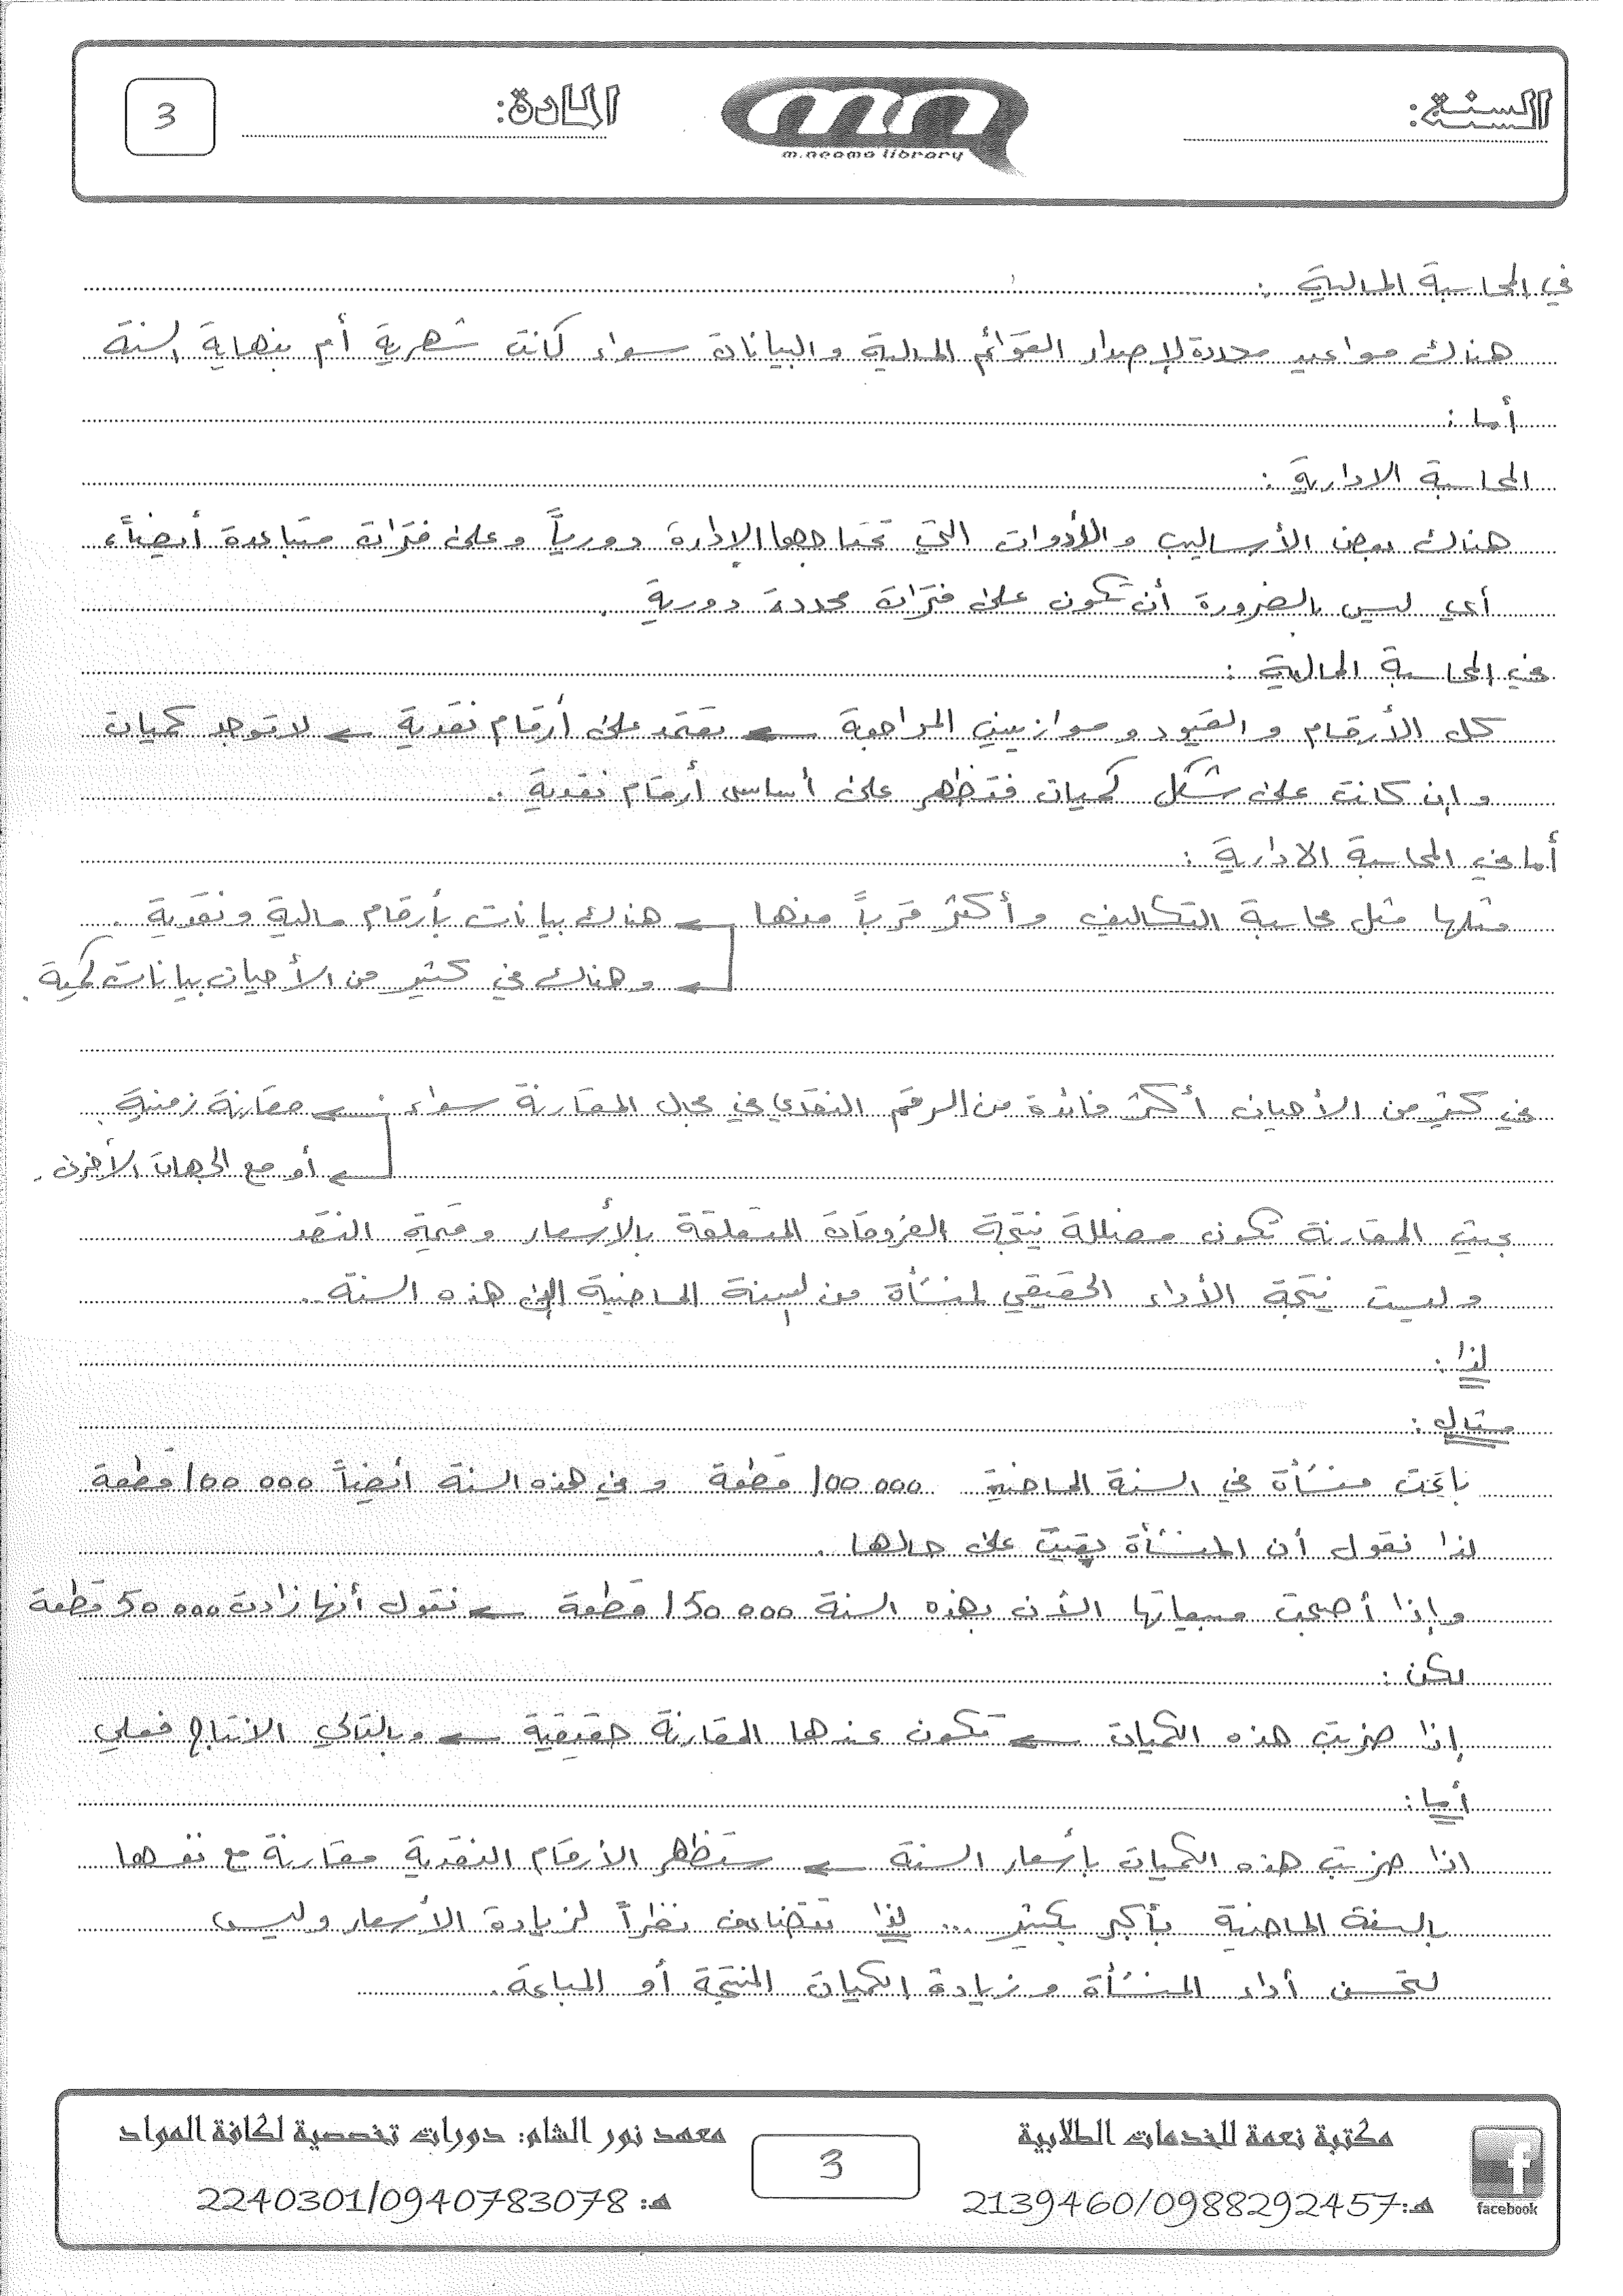 السنة:
m.neama library
المادة:
3
في المحاسبة المالية :
هناك مواعيد محددة لإصدار القوائم المالية والبيانات سواء كانت شهرية أم بنهاية السنة
أما :
المحاسبة الادارية :
هناك بعض الأساليب والأدوات التي تحتاجها الإدارة دورياً وعلى فترات متباعدة أيضاً،
أي ليس بالضرورة أن تكون على فترات محددة دورية .
في المحاسبة المالية :
كل الأرقام والقيود وموازيين المراجعة ← تعتمد على أرقام نقدية ← لا توجد كميات
وإن كانت على شكل كميات فتظهر على أساس أرقام نقدية ..
أما في المحاسبة الادارية :
مثلها مثل محاسبة التكاليف وأكثر قرباً منها ← هناك بيانات بأرقام مالية ونقدية .
← وهناك في كثير من الأحيان بيانات كمية .
في كثير من الأحيان أكثر فائدة من الرقم النقدي في مجال المقارنة سواء : ← مقارنة زمنية .
← أو مع الجهات الأخرى .
بحيث المقارنة تكون مضللة نتيجة الفروقات المتعلقة بالأسعار وقيمة النقد
وليست نتيجة الأداء الحقيقي لمنشأة من السنة الماضية إلى هذه السنة ..
لذا :
مثال :
باعت منشأة في السنة الماضية 100 000 قطعة وفي هذه السنة أيضاً 100 000 قطعة
لذا نقول أن المنشأة بقيت على حالها .
وإذا أصبحت مبيعاتها الأن بهذه السنة 150 000 قطعة ← نقول أنها زادت 50 000 قطعة
لكن :
إذا ضربت هذه الكميات ← تكون عندها المقارنة حقيقية ← وبالتالي الانتاج فعلي
أما :
اذا ضربت هذه الكميات بأسعار السنة ← ستظهر الأرقام النقدية مقارنة مع نفسها
بالسنة الماضية بأكبر بكثير ... لذا تتضاعف نظراً لزيادة الأسعار وليس
لتحسن أداء المنشأة وزيادة الكميات المنتجة أو المباعة .
مكتبة نعمة للخدمات الطلابية
هـ: 2139460/0988292457
facebook
3
معهد نور الشام: دورات تخصصية لكافة المواد
هـ: 2240301/0940783078